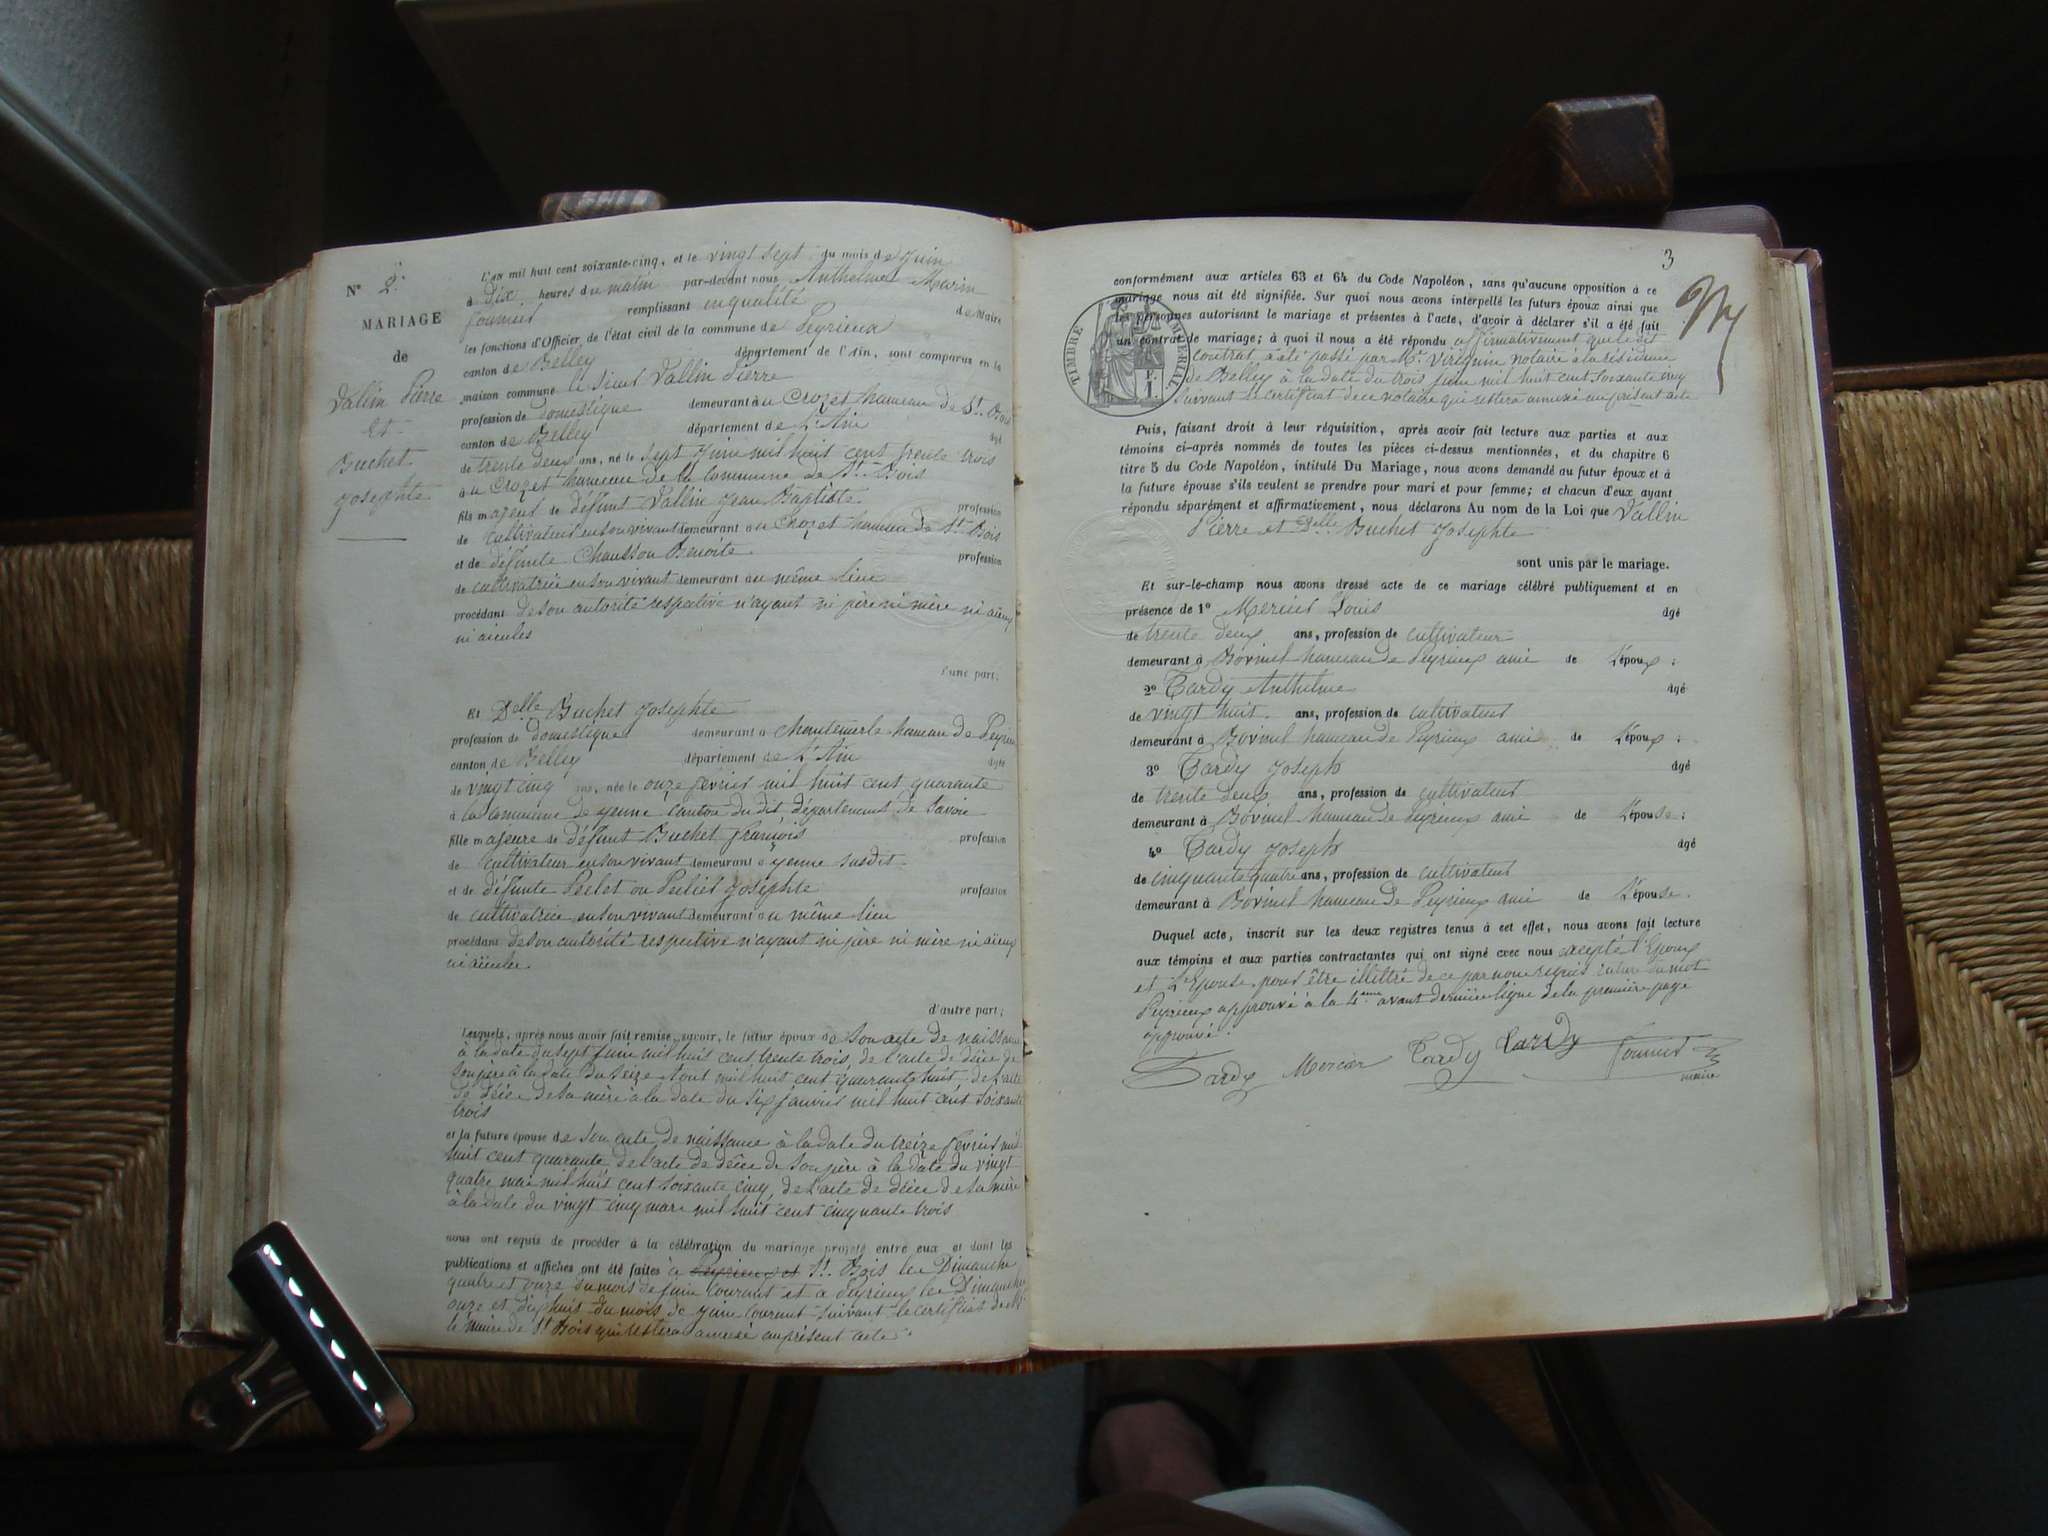 N° 2.
MARIAGE
de
Vallin Pierre
et
Buchet
Josephte
L'an mil huit cent soixante-cinq, et le vingt sept du mois de Juin
à dix heures du matin par-devant nous Anthelme Marin
fournier remplissant en qualité de Maire
les fonctions d'Officier de l'état civil de la commune de Peyrieux
canton de Belley département de l'Ain, sont comparus en la
maison commune le Sieur Vallin Pierre
profession de domestique demeurant à u Crozet hameau de St. Bois
canton de Belley département de L'Ain âgé
de trente deux ans, né le sept Juin mil huit cent trente trois
à u Crozet hameau de la Commune de St. Bois
fils majeur de défunt Vallin Jean Baptiste profession
de cultivateur en son vivant demeurant à u Crozet hameau de St. Bois
et de défunte Chausson Benoite profession
de cultivatrice en son vivant demeurant à u même lieu
procédant de son autorité respective n'ayant ni père ni mère ni aïeux
ni aieules
d'une part;
Et Delle Buchet Josephte
profession de domestique demeurant à Chantemerle hameau de Peyrieux
canton de Belley département de L'Ain âgée
de vingt cinq ans, née le onze fevrier mil huit cent quarante
à la Commune de yenne canton du dit département de Savoie
fille majeure de défunt Buchet françois profession
de cultivateur en son vivant demeurant à yenne susdit
et de défunte Perlet ou Perliet Josephte profession
de cultivatrice en son vivant demeurant à u même lieu
procédant de son autorité respective n'ayant ni père ni mère ni aïeux
ni aïeules
d'autre part;
Lesquels, après nous avoir fait remise, savoir, le futur époux de son acte de naissance
à la date du sept juin mil huit cent trente trois, de l'acte de décès de
son père à la date du seize août mil huit cent quarante huit, de l'acte
de décès de sa mère à la date du six janvier mil huit cent soixante
trois
et la future épouse de son acte de naissance à la date du treize fevrier mil
huit cent quarante de l'acte de décès de son père à la date du vingt
quatre mai mil huit cent soixante cinq, de l'acte de décès de sa mère
à la date du vingt cinq mars mil huit cent cinquante trois
nous ont requis de procéder à la célébration du mariage projeté entre eux et dont les
publications et affiches ont été faites à Peyrieux et St. Bois les Dimanche
quatre et onze du mois de juin courant et à Peyrieux les Dimanches
onze et dix huit du mois de juin courant suivant le certificat de Mr
le maire de St Bois qui restera annexé au présent acte.
3
conformément aux articles 63 et 64 du Code Napoléon, sans qu'aucune opposition à ce
mariage nous ait été signifiée. Sur quoi nous avons interpellé les futurs époux ainsi que
les personnes autorisant le mariage et présentes à l'acte, d'avoir à déclarer s'il a été fait
un contrat de mariage; à quoi il nous a été répondu affirmativement que le dit
contrat, a été passé par Me. Virignin notaire à la résidence
de Belley à la date du trois juin mil huit cent soixante cinq
suivant le certificat de ce notaire qui restera annexé au présent acte
TIMBRE IMPERIAL
Puis, faisant droit à leur réquisition, après avoir fait lecture aux parties et aux
témoins ci-après nommés de toutes les pièces ci-dessus mentionnées, et du chapitre 6
titre 5 du Code Napoléon, intitulé Du Mariage, nous avons demandé au futur époux et à
la future épouse s'ils veulent se prendre pour mari et pour femme; et chacun d'eux ayant
répondu séparément et affirmativement, nous déclarons Au nom de la Loi que Vallin
Pierre et Delle Buchet Josephte
sont unis par le mariage.
Et sur-le-champ nous avons dressé acte de ce mariage célébré publiquement et en
présence de 1° Mercier Louis âgé
de trente deux ans, profession de cultivateur
demeurant à Bovinel hameau de Peyrieux ami de L'époux;
2° Tardy Anthelme âgé
de vingt huit ans, profession de cultivateur
demeurant à Bovinel hameau de Peyrieux ami de L'époux;
3° Tardy Joseph âgé
de trente deux ans, profession de cultivateur
demeurant à Bovinel hameau de Peyrieux ami de L'épouse;
4° Tardy Joseph âgé
de cinquante quatre ans, profession de cultivateur
demeurant à Bovinel hameau de Peyrieux ami de L'épouse.
Duquel acte, inscrit sur les deux registres tenus à cet effet, nous avons fait lecture
aux témoins et aux parties contractantes qui ont signé avec nous excepté l'Epoux
et L'Epouse pour être illettré de ce par nous requis rature du mot
Peyrieux approuvé à la 4eme avant dernière ligne de la première page
approuvé.
Tardy Mercier Tardy Tardy fournier
maire